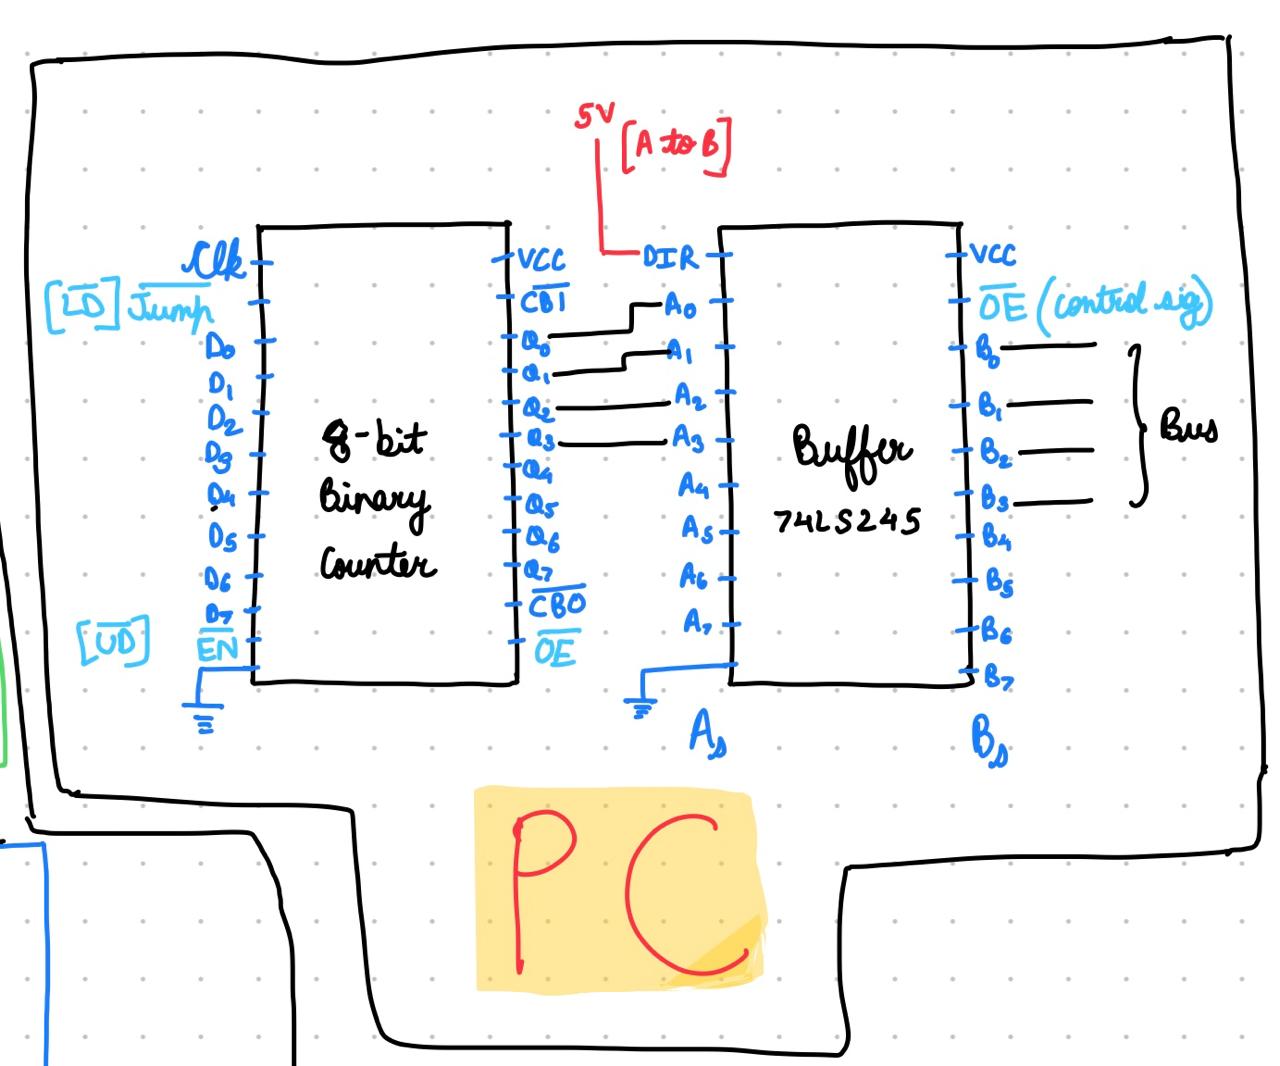 5V
[A to B]
Clk
[L̅D̅] J̅u̅m̅p̅
D0
D1
D2
D3
D4
D5
D6
D7
[U̅D̅] E̅N̅
8-bit
Binary
Counter
VCC
C̅B̅I̅
Q0
Q1
Q2
Q3
Q4
Q5
Q6
Q7
C̅B̅O̅
O̅E̅
DIR
A0
A1
A2
A3
A4
A5
A6
A7
As
Buffer
74LS245
VCC
O̅E̅ (control sig)
B0
B1
B2
B3
B4
B5
B6
B7
Bs
Bus
PC